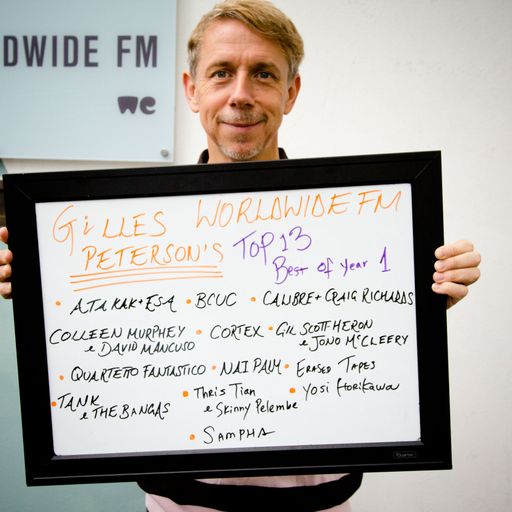 DWIDE FM
we
GiLLES WORLDWIDE FM
PETERSON'S TOP 13
Best of Year 1
• ATA KAK + ESA • BCUC • CALIBRE + CRAIG RICHARDS
COLLEEN MURPHEY • CORTEX • GIL SCOTT HERON
e DAVID MANCUSO e JONO McCLEERY
• QUARTETTO FANTASTICO • NAI PALM • ERASED TAPES
• TANK • Thris Tian • Yosi Horikawa
e THE BANGAS e Skinny Pelembe
• SAMPHA